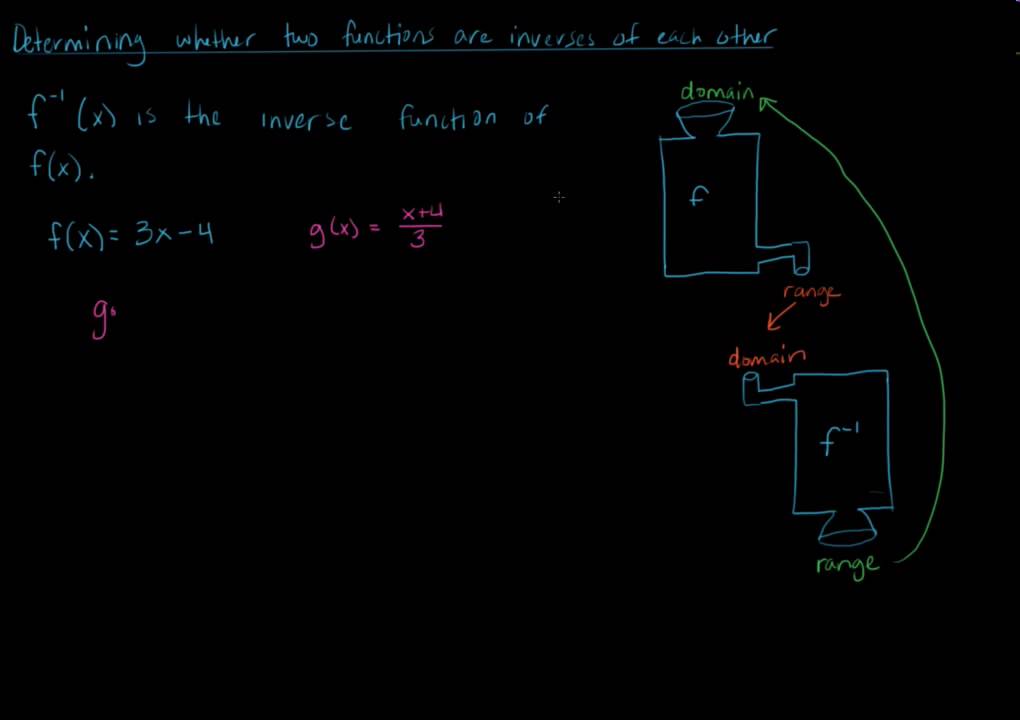 Determining whether two functions are inverses of each other
f⁻¹(x) is the inverse function of
f(x).
f(x) = 3x - 4
g(x) = (x+4)/3
g∘
domain
f
range
domain
f⁻¹
range